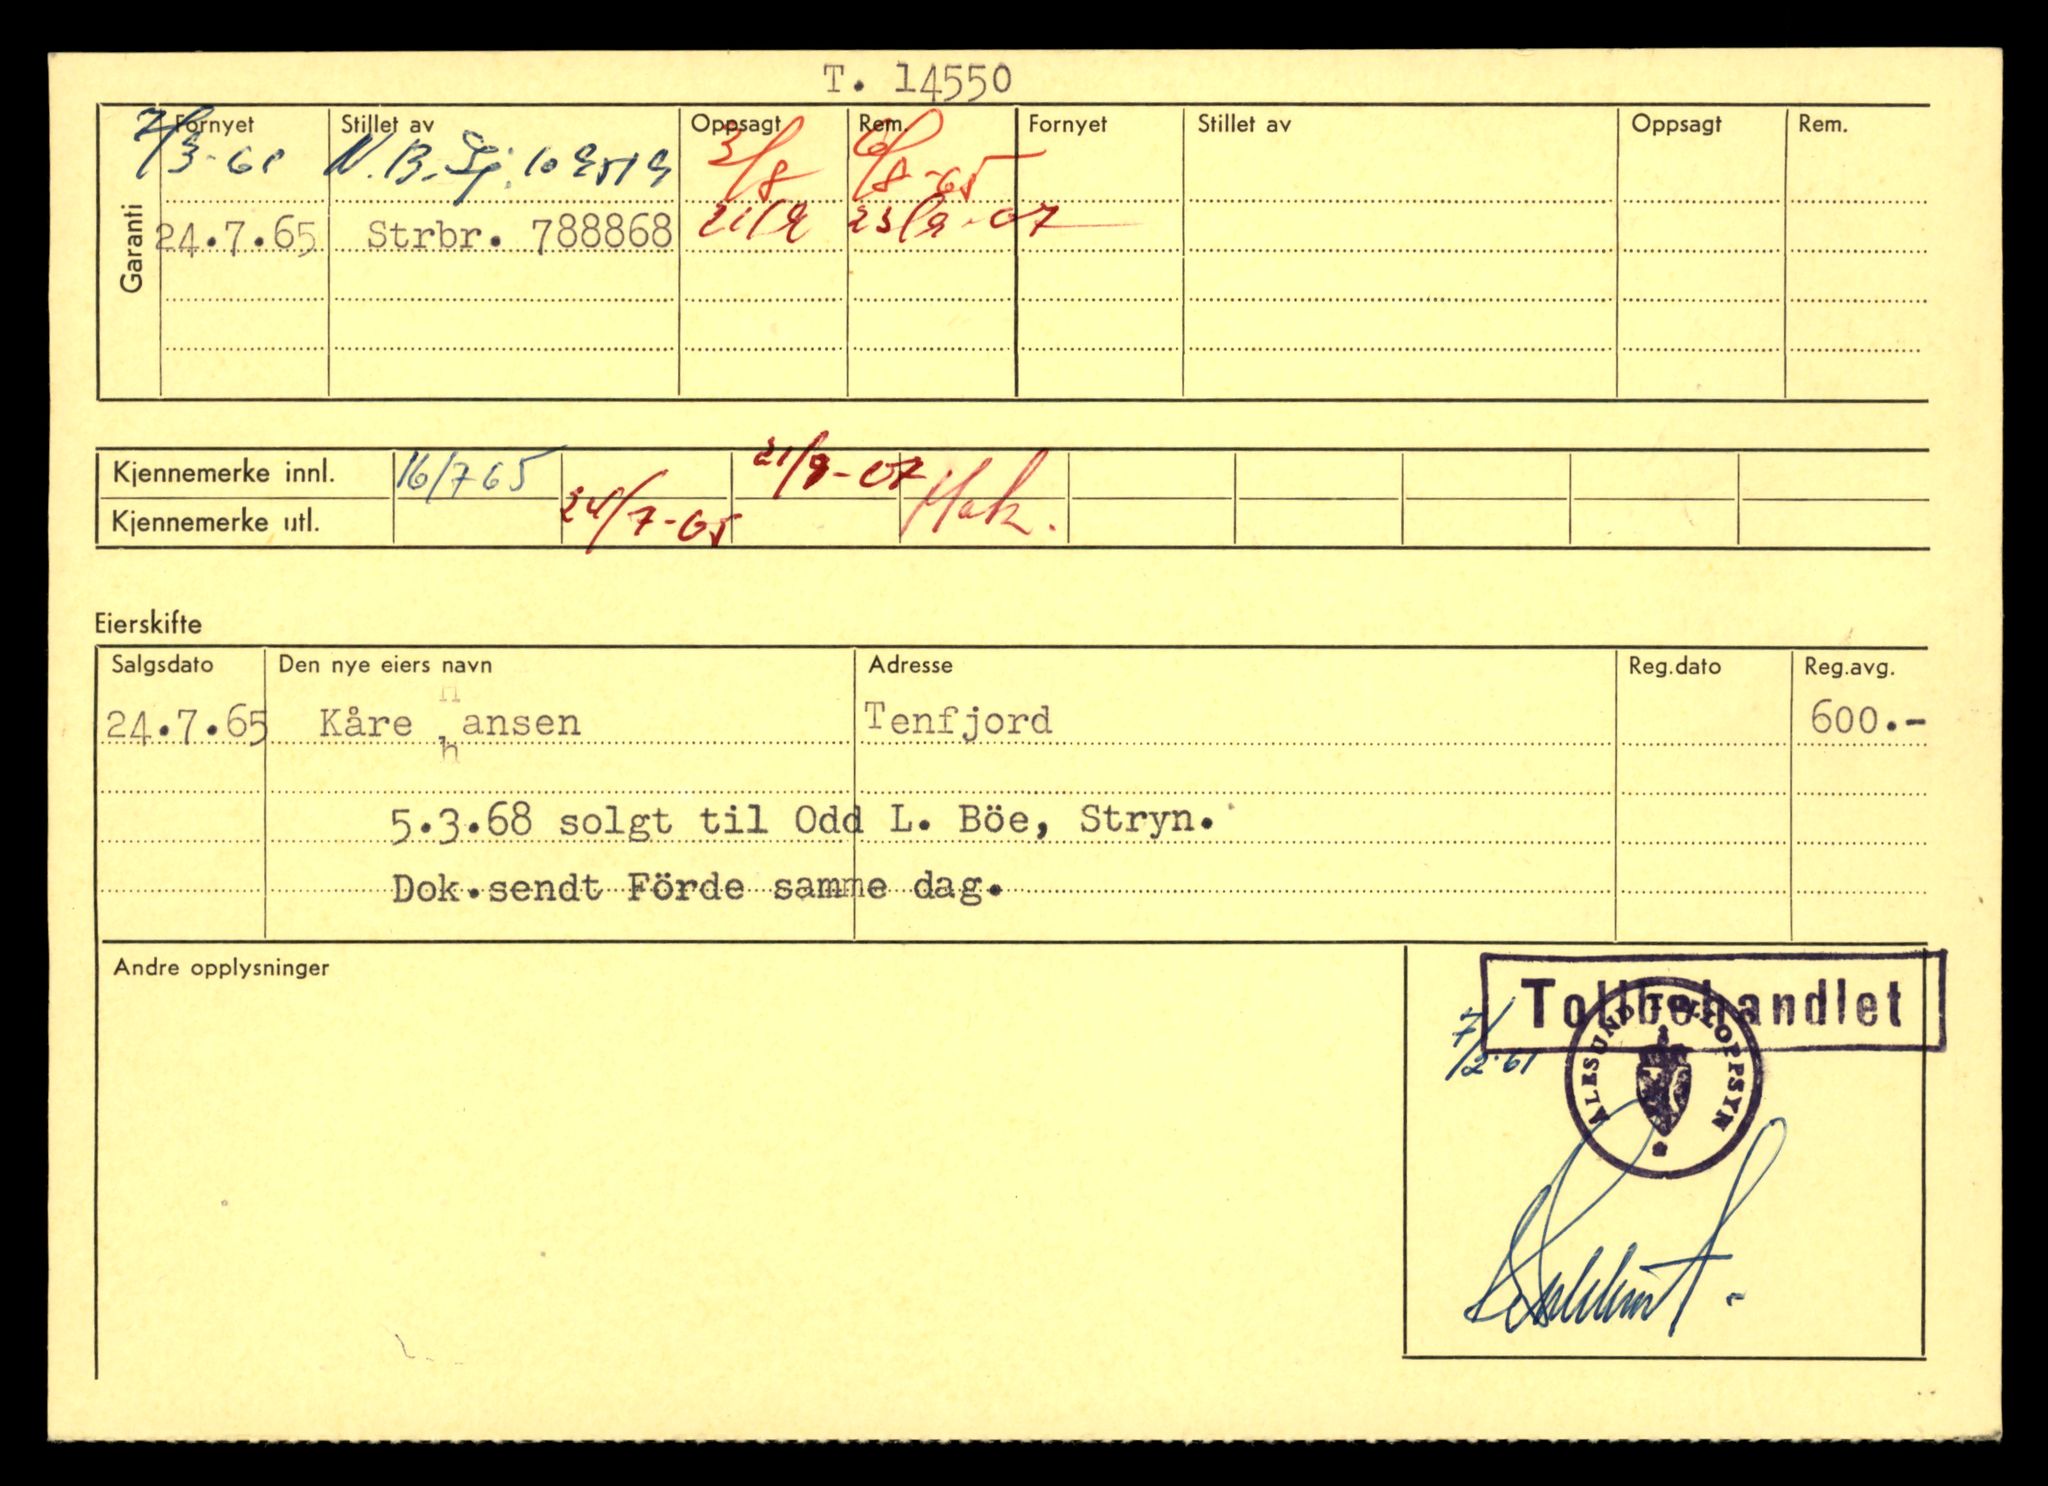 T. 14550
Garanti
Fornyet Stillet av Oppsagt Rem. Fornyet Stillet av Oppsagt Rem.
7/3-61 N.B. 3/8 6/8-65
24.7.65 Strbr. 788868 21/9 23/9-67
Kjennemerke innl. 16/7 65 21/9-67
Kjennemerke utl. 24/7-65
Eierskifte
Salgsdato Den nye eiers navn Adresse Reg.dato Reg.avg.
24.7.65 Kåre hansen Tenfjord 600.-
5.3.68 solgt til Odd L. Böe, Stryn.
Dok.sendt Förde samme dag.
Andre opplysninger
Tollbehandlet
7/2-61
ÅLESUND TOLLOPPSYN